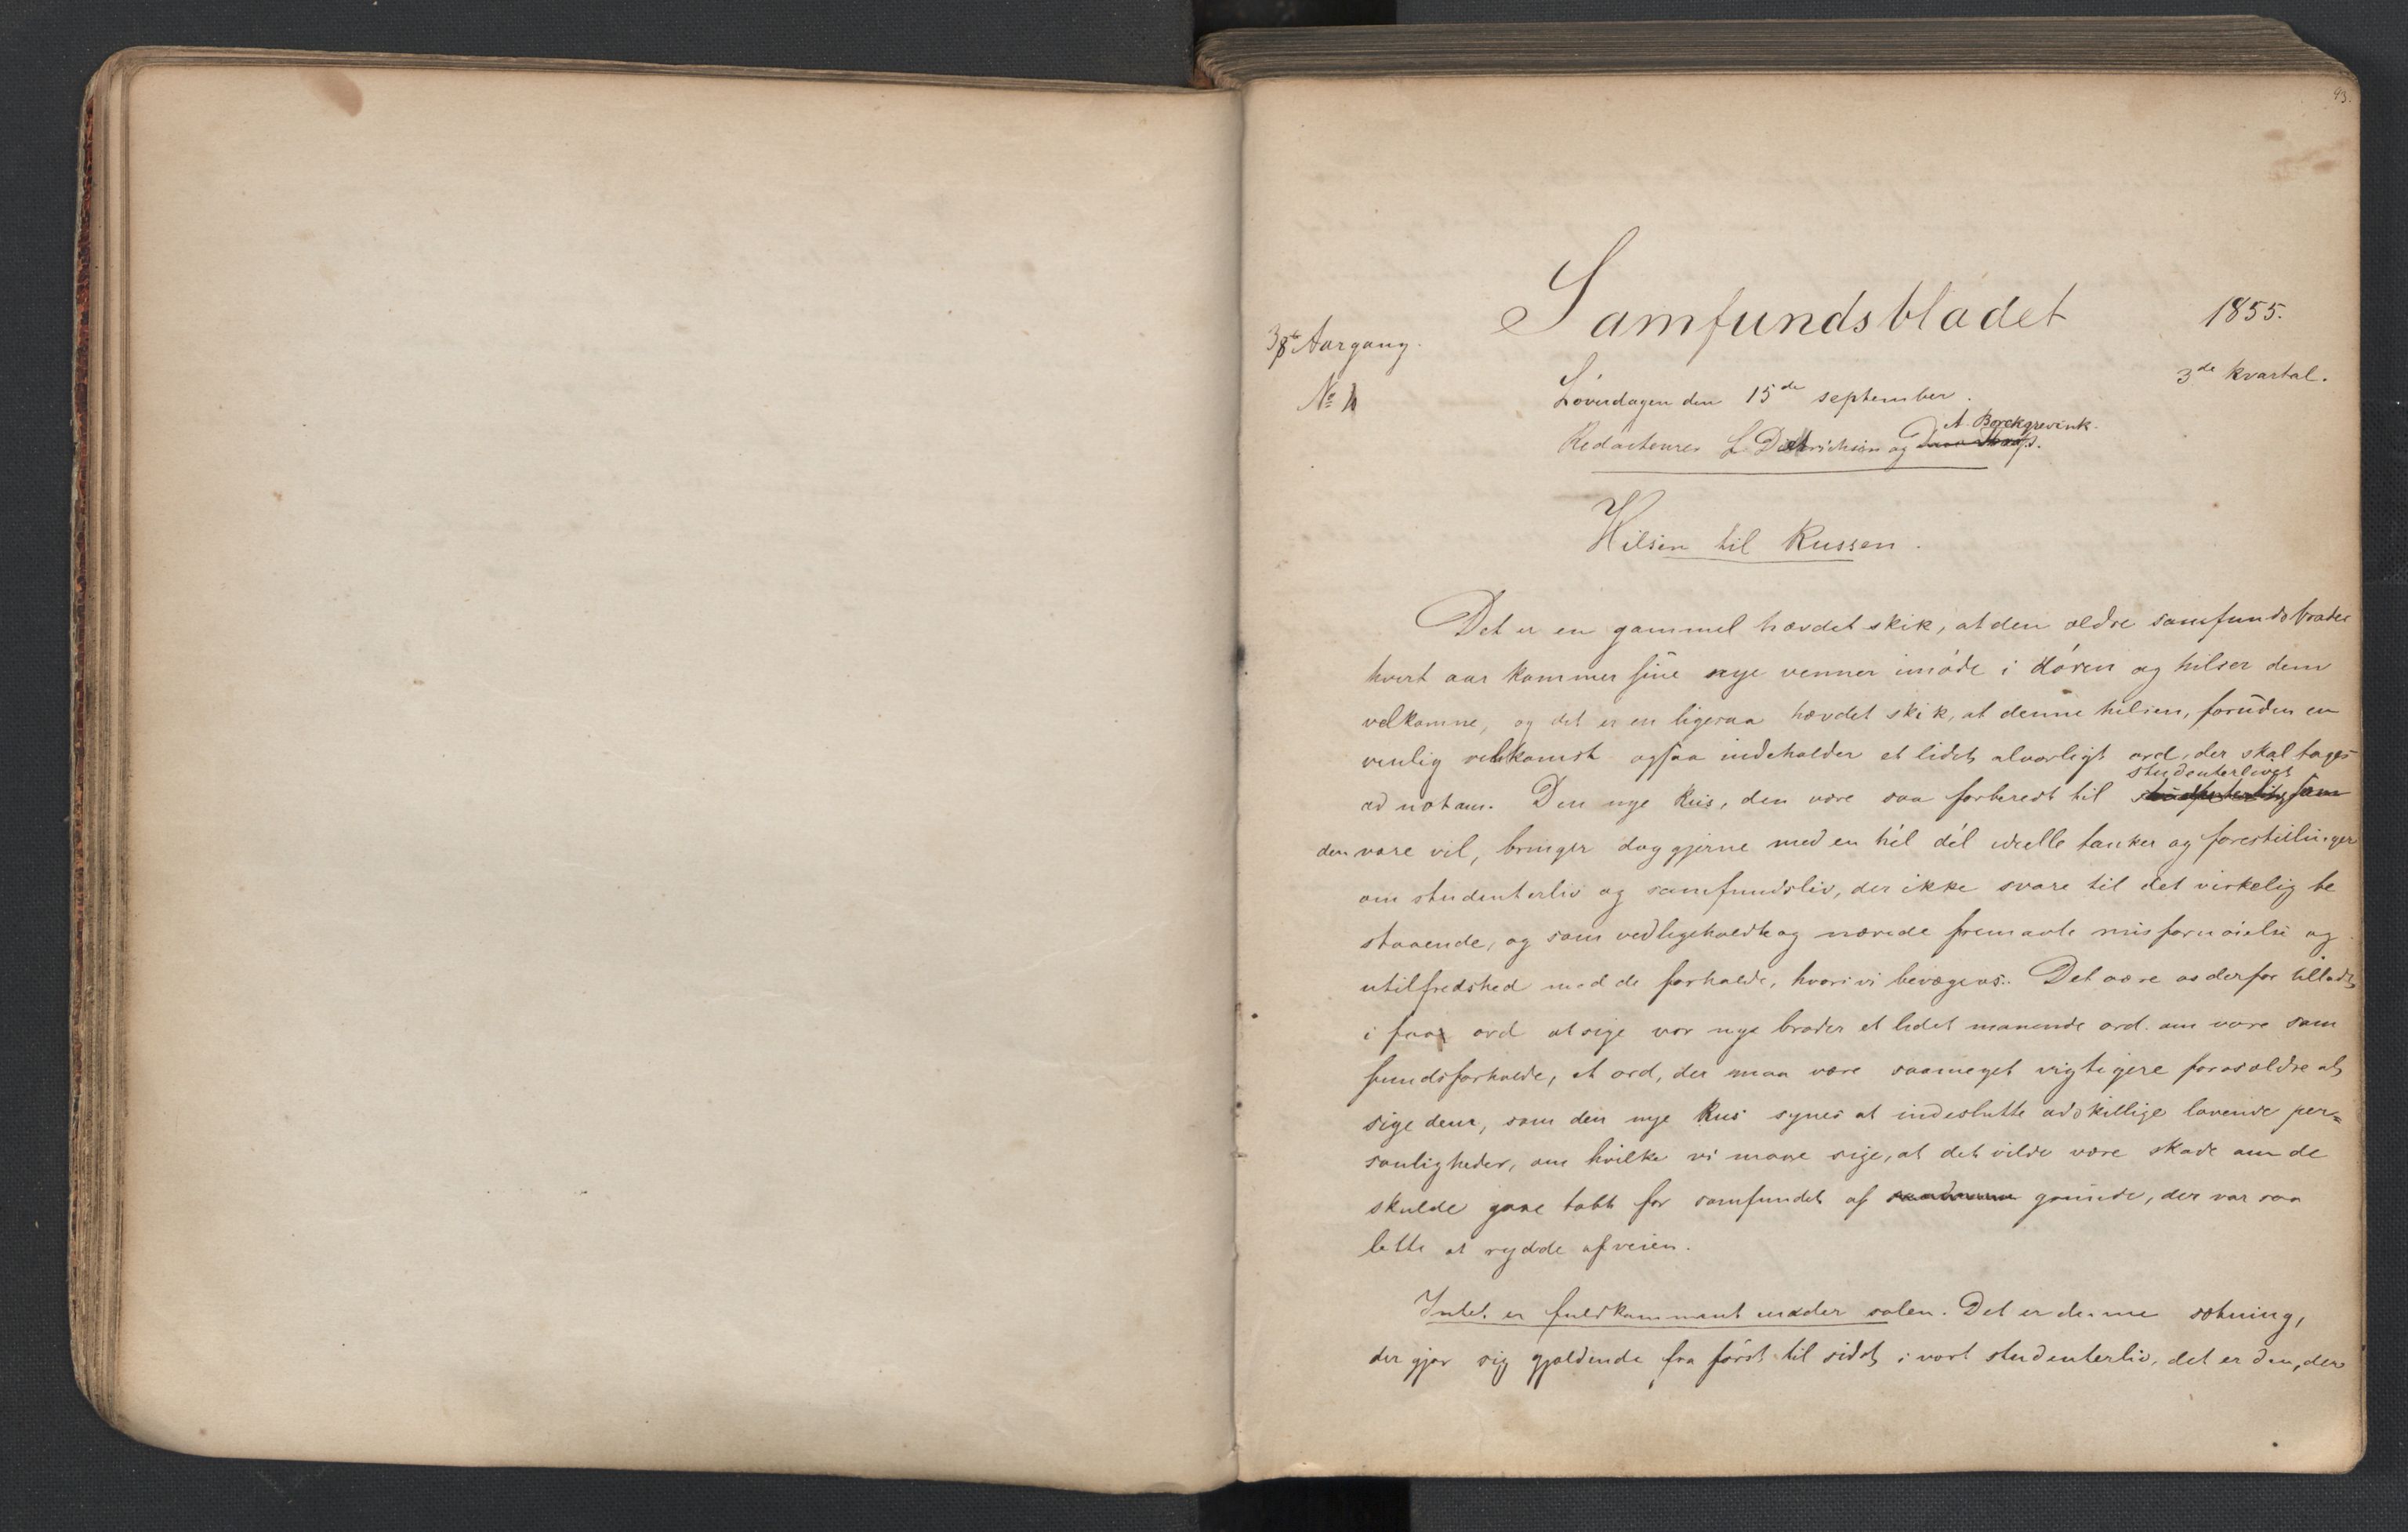 93.
Samfundsbladet
1855.
38te Aargang.
3de kvartal.
No 1
Løverdagen den 15de september.
A. Borchgrevink.
Redacteurer L. Dietrichson og
Hilsen til Russen.
Det er en gammel hævdet skik, at den ældre samfundsbroder
hvert aar kommer sine nye venner imøde i døren og hilser dem
velkomne, og det er en ligesaa hævdet skik, at denne hilsen, foruden en
venlig velkomst ogsaa indeholder et lidet alvorligt ord, der skal tages
studenterlivet
ad notam. Den nye Rus, den være saa forberedt til som
den være vil, bringer dog gjerne med en hél dél idielle tanker og forestillinger
om studenterliv og samfundsliv, der ikke svare til det virkelig be
staaende, og som vedligeholdte og nærede fremavle misfornøielse og
utilfredshed med de forholde, hvori vi bevæge os. Det være os derfor tilladt
i faa ord at sige vor nye broder et lidet manende ord om vore sam
fundsforholde, et ord, der maa være saameget vigtigere for os ældre at
sige dem, som den nye Rus synes at indeslutte adskillige lovende per=
sonligheder, om hvilke vi maae sige, at det vilde være skade om de
skulde gaae tabt for samfundet af grunde, der var saa
lette at rydde af veien.
Intet er fuldkomment under solen. Det er denne sætning,
der gjør sig gjældende fra først til sidst i vort studenterliv, det er den, der